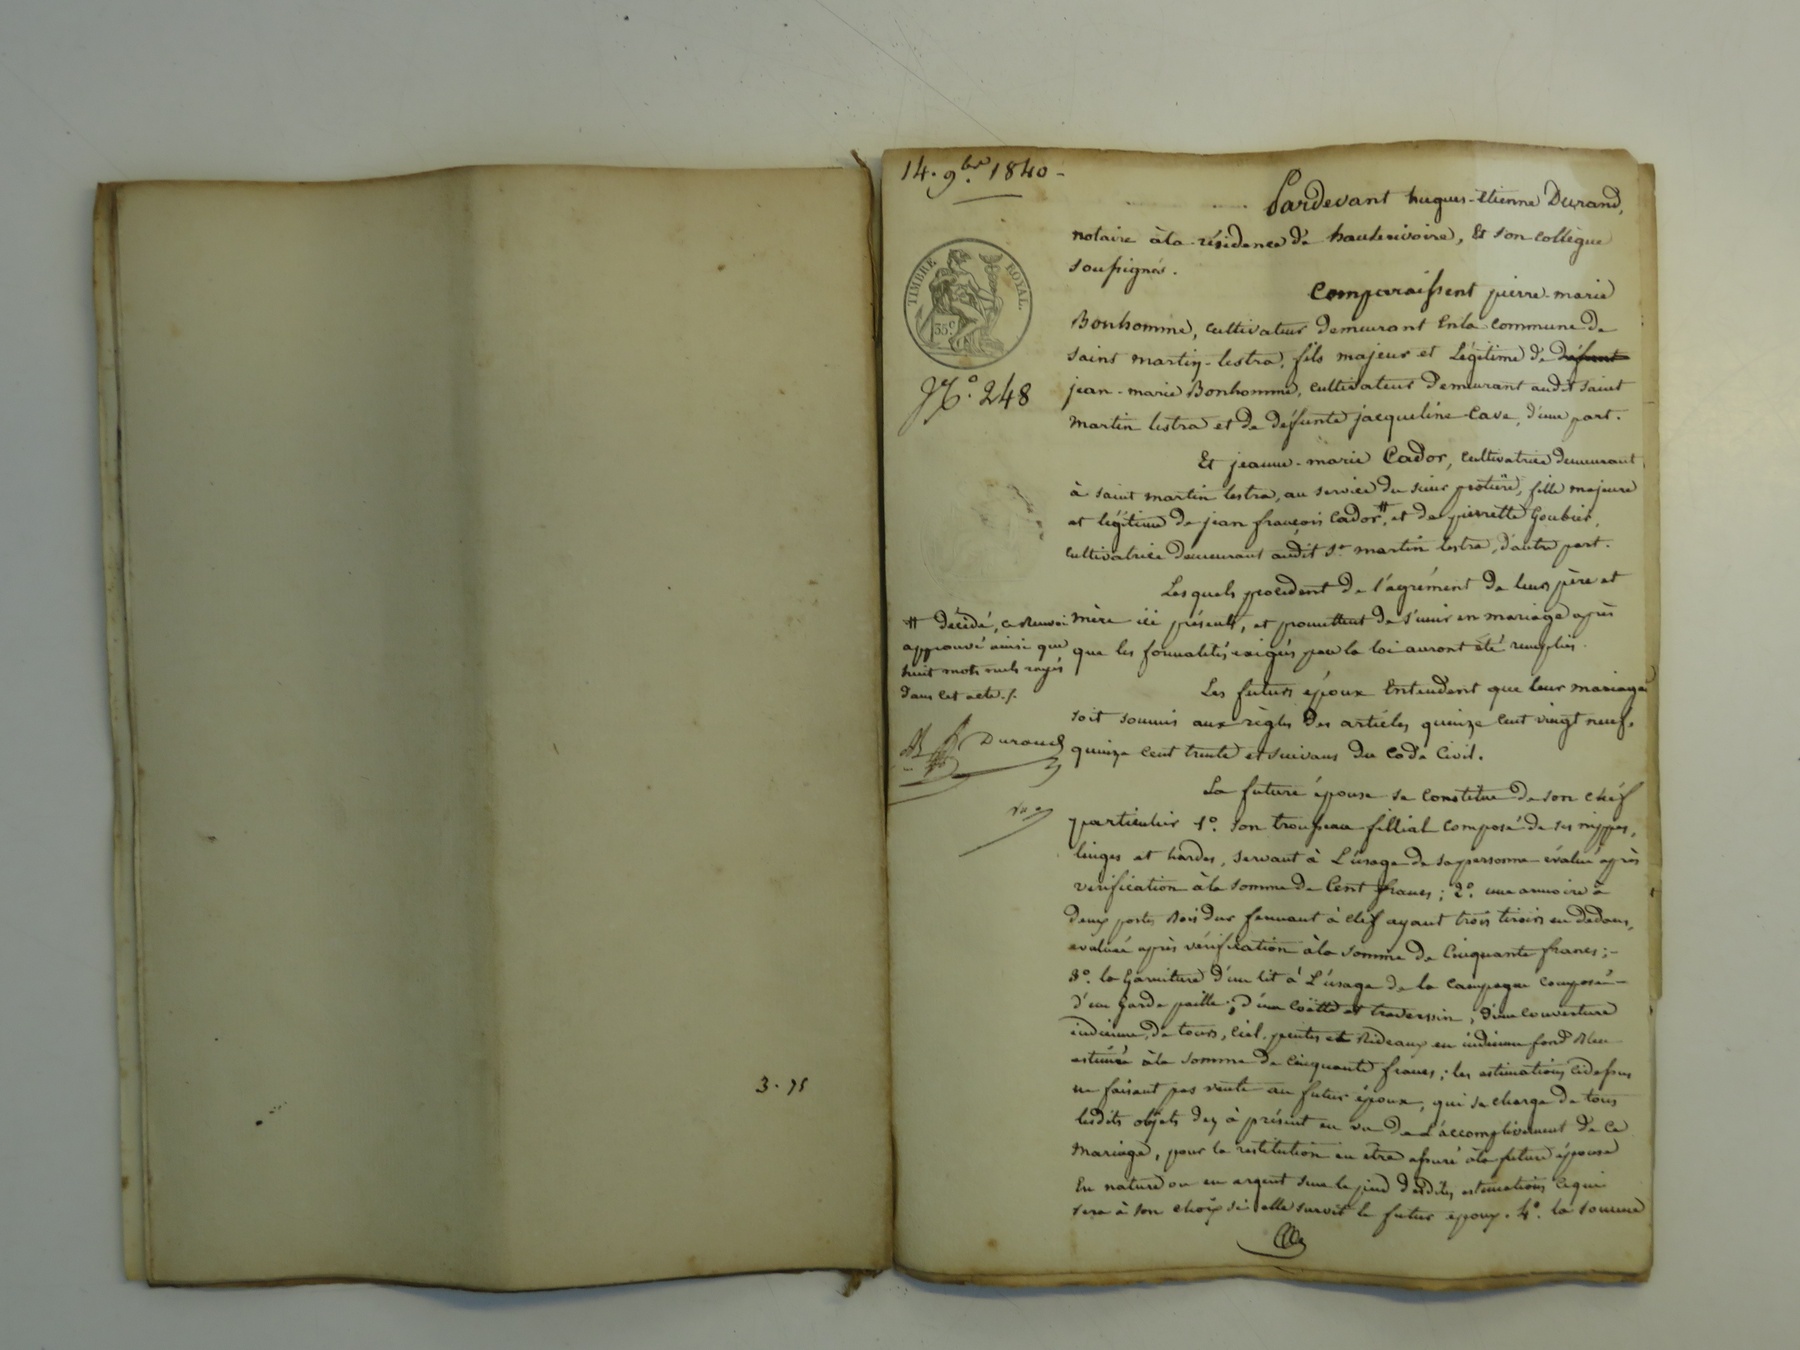 3.75
14. 9bre 1840 -
Pardevant hugues-Etienne Durand,
notaire à la résidence de hauterivoire, Et son collègue
soussignés.
TIMBRE ROYAL.
35c
N.o 248
Comparaissent pierre-marie
Bonhomme, cultivateur demeurant En la commune de
saint martin-lestra, fils majeur et Légitime de défunt
jean-marie Bonhomme, cultivateur demeurant audit saint
martin lestra et de défunte jacqueline Cave, d'une part.
Et jeanne-marie Cador, cultivatrice demeurant
à saint martin lestra, au service du sieur protière, fille majeure
et légitime de jean françois Cador #, et de pierrette Goubier,
cultivatrice demeurant audit st martin lestra, d'autre part.
Lesquels procèdent de l'agrément de leurs père et
mère ici présents, et promettent de s'unir en mariage après
que les formalités exigées par la loi auront été remplies.
# décédé, ce Renvoi
approuvé ainsi que
huit mots nuls rayés
dans cet acte./.
Durand
Les futurs époux Entendent que leur mariage
soit soumis aux règles des articles quinze cent vingt neuf,
quinze cent trente et suivans du Code Civil.
La future épouse se constitue de son chef
particulier 1o. son trousseau fillial composé de ses nippes,
linges et hardes, servant à L'usage de sa personne évalué après
vérification à la somme de Cent francs; 2o. une armoire à
deux portes Bois dur fermant à clef ayant trois tiroirs en dedans,
evaluée après vérification à la somme de Cinquante francs; -
3o. la Garniture d'un lit à L'usage de la campagne composée
d'un Garde paille; d'une Coëtte et traversin, d'une couverture
indienne, de tours, Ciel, pentes et Rideaux en indienne fond Bleu
estimée à la somme de cinquante francs; les estimations cidessus
ne faisant pas vente au futur époux, qui se charge de tous
lesdits objets dez à présent en vu de L'accomplissement de ce
Mariage, pour la restitution en être assuré à la future épouse
En nature ou en argent sur le pied desdites estimations ce qui
sera à son choix si elle survit le futur époux. 4o. la somme